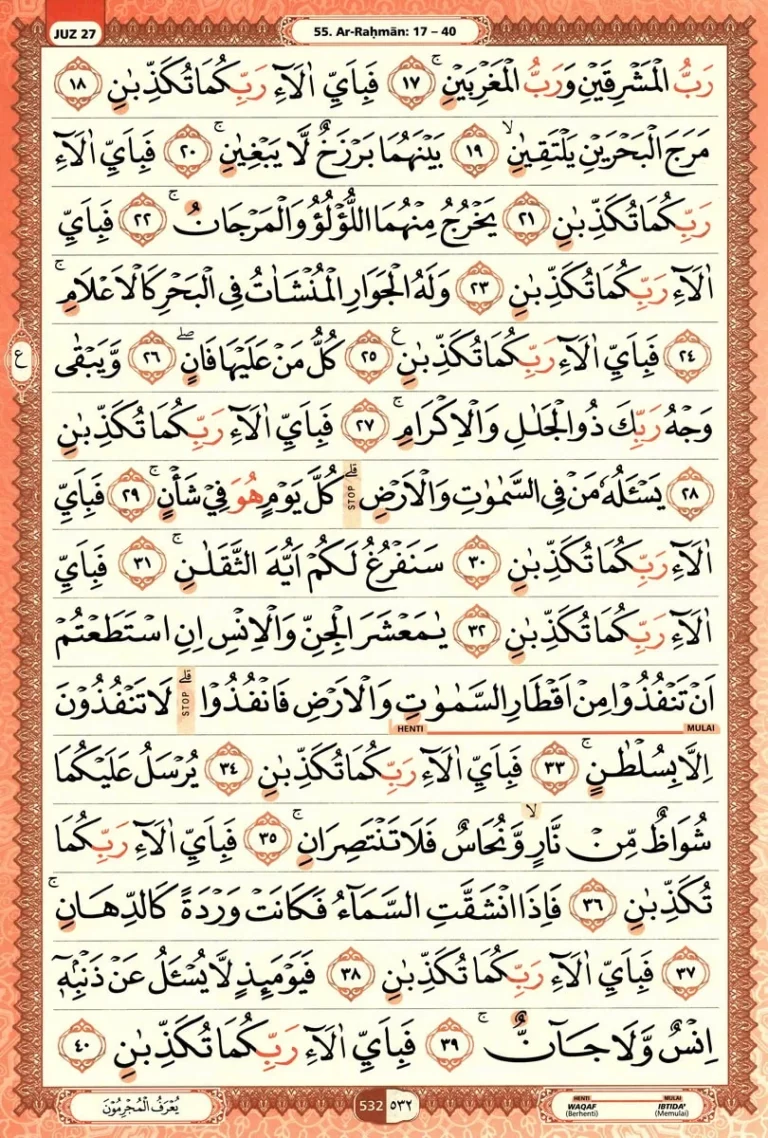 JUZ 27
55. Ar-Raḥmān: 17 – 40
رَبُّ الْمَشْرِقَيْنِ وَرَبُّ الْمَغْرِبَيْنِۚ ١٧ فَبِاَيِّ اٰلَاۤءِ رَبِّكُمَا تُكَذِّبٰنِ ١٨
مَرَجَ الْبَحْرَيْنِ يَلْتَقِيٰنِۙ ١٩ بَيْنَهُمَا بَرْزَخٌ لَّا يَبْغِيٰنِۚ ٢٠ فَبِاَيِّ اٰلَاۤءِ
رَبِّكُمَا تُكَذِّبٰنِ ٢١ يَخْرُجُ مِنْهُمَا اللُّؤْلُؤُ وَالْمَرْجَانُۚ ٢٢ فَبِاَيِّ
اٰلَاۤءِ رَبِّكُمَا تُكَذِّبٰنِ ٢٣ وَلَهُ الْجَوَارِ الْمُنْشَاٰتُ فِى الْبَحْرِ كَالْاَعْلَامِۚ
٢٤ فَبِاَيِّ اٰلَاۤءِ رَبِّكُمَا تُكَذِّبٰنِ ࣖ ٢٥ كُلُّ مَنْ عَلَيْهَا فَانٍۖ ٢٦ وَّيَبْقٰى
ع
وَجْهُ رَبِّكَ ذُو الْجَلٰلِ وَالْاِكْرَامِۚ ٢٧ فَبِاَيِّ اٰلَاۤءِ رَبِّكُمَا تُكَذِّبٰنِ
٢٨ يَسْـَٔلُهٗ مَنْ فِى السَّمٰوٰتِ وَالْاَرْضِۗ STOP كُلَّ يَوْمٍ هُوَ فِيْ شَأْنٍۚ ٢٩ فَبِاَيِّ
اٰلَاۤءِ رَبِّكُمَا تُكَذِّبٰنِ ٣٠ سَنَفْرُغُ لَكُمْ اَيُّهَ الثَّقَلٰنِۚ ٣١ فَبِاَيِّ
اٰلَاۤءِ رَبِّكُمَا تُكَذِّبٰنِ ٣٢ يٰمَعْشَرَ الْجِنِّ وَالْاِنْسِ اِنِ اسْتَطَعْتُمْ
اَنْ تَنْفُذُوْا مِنْ اَقْطَارِ السَّمٰوٰتِ وَالْاَرْضِ فَانْفُذُوْاۗ STOP لَا تَنْفُذُوْنَ
MULAI HENTI
اِلَّا بِسُلْطٰنٍۚ ٣٣ فَبِاَيِّ اٰلَاۤءِ رَبِّكُمَا تُكَذِّبٰنِ ٣٤ يُرْسَلُ عَلَيْكُمَا
شُوَاظٌ مِّنْ نَّارٍۙ وَّنُحَاسٌ فَلَا تَنْتَصِرَانِۚ ٣٥ فَبِاَيِّ اٰلَاۤءِ رَبِّكُمَا
تُكَذِّبٰنِ ٣٦ فَاِذَا انْشَقَّتِ السَّمَاۤءُ فَكَانَتْ وَرْدَةً كَالدِّهَانِۚ
٣٧ فَبِاَيِّ اٰلَاۤءِ رَبِّكُمَا تُكَذِّبٰنِ ٣٨ فَيَوْمَىِٕذٍ لَّا يُسْـَٔلُ عَنْ ذَنْۢبِهٖٓ
اِنْسٌ وَّلَا جَاۤنٌّۚ ٣٩ فَبِاَيِّ اٰلَاۤءِ رَبِّكُمَا تُكَذِّبٰنِ ٤٠
يُعْرَفُ الْمُجْرِمُوْنَ
532 ٥٣٢
HENTI MULAI
WAQAF IBTIDA'
(Berhenti) (Memulai)